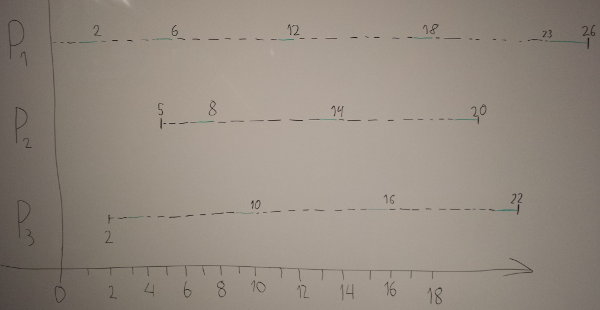 P1 2 6 12 18 23 26
P2 5 8 14 20
P3 2 10 16 22
0 2 4 6 8 10 12 14 16 18